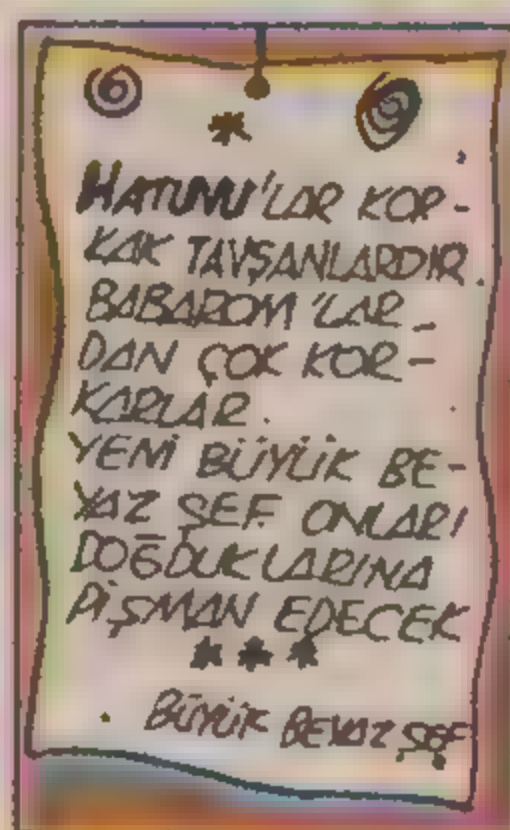 HATUVU'LAR KOR-
KAK TAVŞANLARDIR.
BABAROM'LAR-
DAN ÇOK KOR-
KARLAR.
YENİ BÜYÜK BE-
YAZ ŞEF ONLARI
DOĞDUKLARINA
PİŞMAN EDECEK
***
BÜYÜK BEYAZ ŞEF